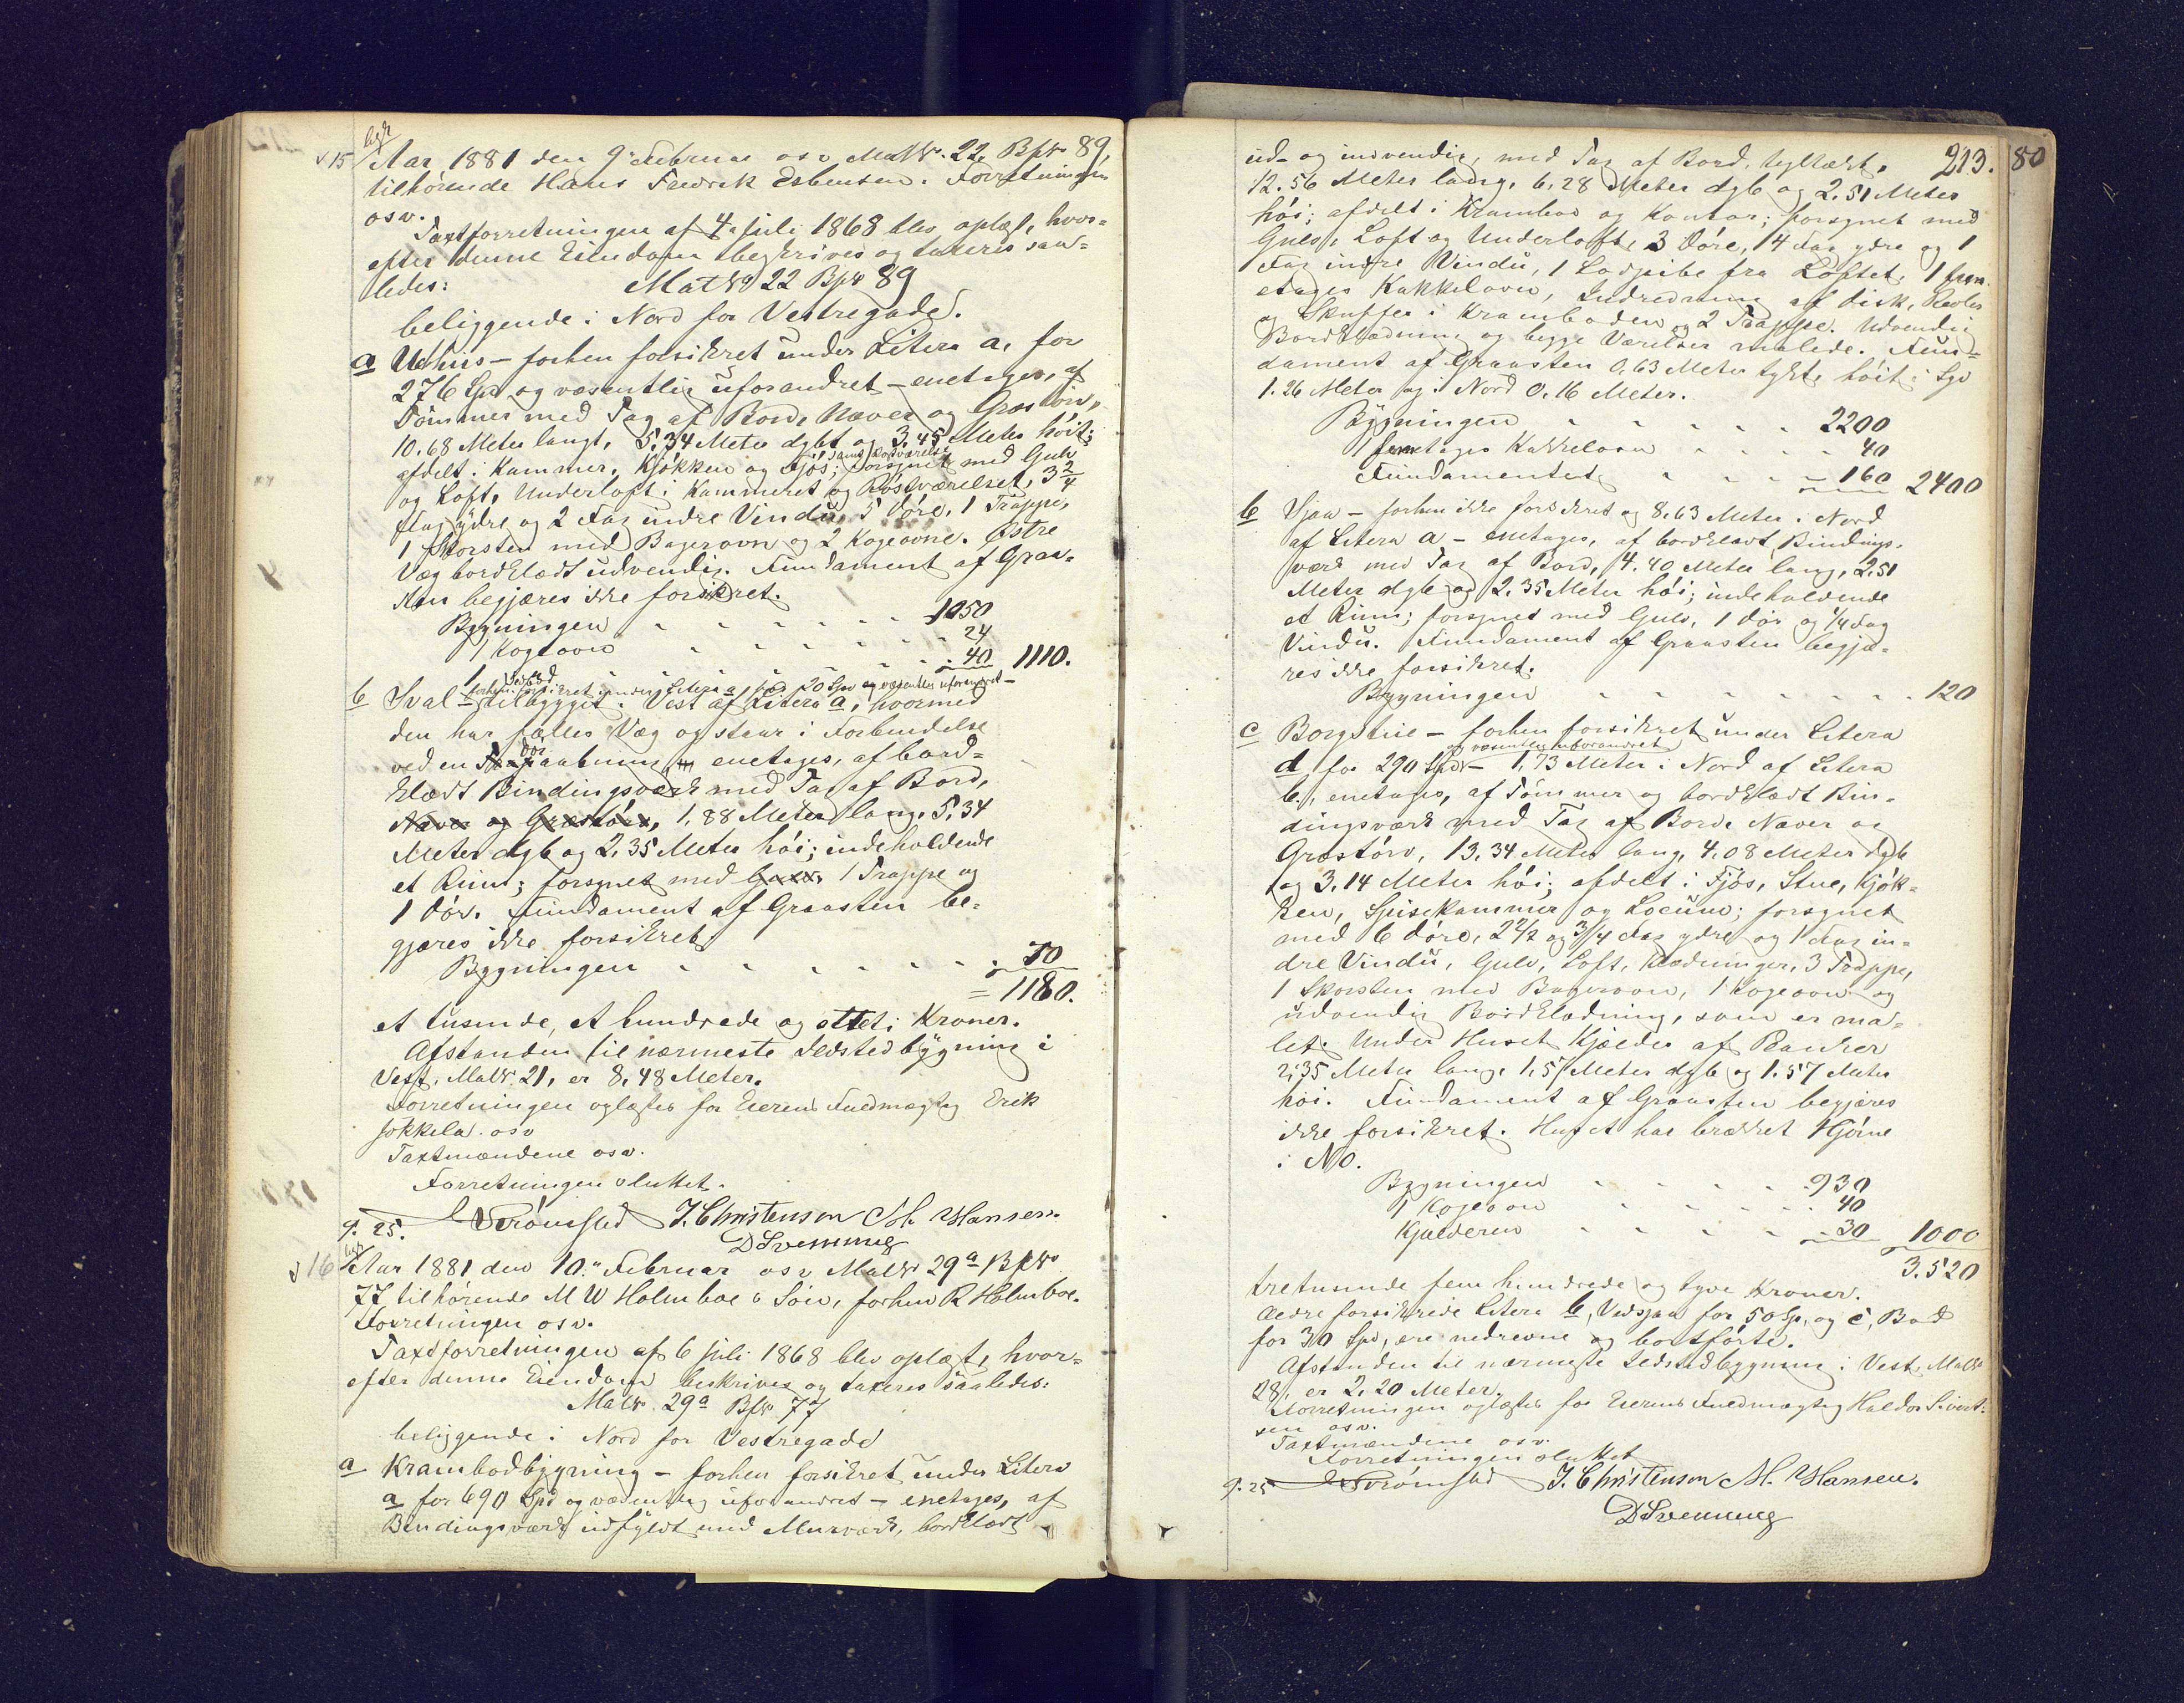 bgr
15 Aar 1881 den 9de Februar osv Matr. 22, Bpr 89,
tilhørende Hans Fredrik Esbensen. Forretningen
osv.
Taxtforretningen af 4. juli 1868 blev oplæst, hvor-
efter denne Eiendom beskrives og taxeres saa-
ledes:
Matr 22 Bpr 89
beliggende i Nord for Vestregade.
a Udhus - forhen forsikret under Litera a, for
276 Spd og væsentlig uforandret - enetages, af
Tømmer med Tag af Bord, Næver og Græstørv,
10.68 Meter langt, 5,34 Meter dybt og 3.45 Meter høit;
samt Rostværelse
afdelt i Kammer, Kjøkken og Fjøs; forsynet med Gulv
og Loft, Underloft i Kammeret og Rostværelset, 3 2/4
Fag ydre og 2 Fag indre Vindu, 5 Døre, 1 Trappe,
1 Skorsten med Bagerovn og 2 Kogeovne. Østre
Væg bordklædt udvendig. Fundament af Graa-
sten begjæres ikke forsikret.
Bygningen 1050
1 Kogeovn 24
1 40 1110.
forhen forsikret under Litera a for 20 Spd og væsentlig uforandret -
b Sval - tilbygget i Vest af Litera a, hvormed
den har fælles Væg og staar i Forbindelse
Dør
ved en aabning, enetages, af bord-
klædt Bindingsværk med Tag af Bord,
Næver og Græstørv, 1,88 Meter lang, 5,34
Meter dyb og 2,35 Meter høi; indeholdende
et Rum; forsynet med Gulv, 1 Trappe og
1 Dør. Fundament af Graasten be-
gjæres ikke forsikret
Bygningen 70
= 1180.
et tusinde, et hundrede og otteti Kroner.
Afstanden til nærmeste Ildstedbygning i
Vest, Matr. 21, er 8,48 Meter.
Forretningen oplæstes for Eierens Fuldmægtig Erik
Jokkela osv
Taxtmændene osv.
Forretningen sluttet.
g. 25. J. Christensen M. Hansen.
D Svenning
bgr
16 Aar 1881 den 10. Februar osv Matr 29a Bpr
77 tilhørende M W Holmboe & Søn, forhen R Holmboe.
Forretningen osv.
Taxtforretningen af 6 juli 1868 blev oplæst, hvor-
efter denne Eiendom beskrives og taxeres saaledes:
Matr. 29a Bpr 77
beliggende i Nord for Vestregade
a Krambodbygning - forhen forsikret under Litera
a for 690 Spd og væsentlig uforandret - enetages, af
Bindingsværk udfyldt med Murværk, bordklædt
213. 80
ud- og indvendig, med Tag af Bord, teglækt,
12.56 Meter lang, 6,28 Meter dyb og 2.51 Meter
høi; afdelt i Krambod og Kontor; forsynet med
Gulv, Loft og Underloft, 3 Døre, 4 Fag ydre og 1
Fag indre Vindu, 1 Ladpibe fra Loftet, 1 fem-
etages Kakkelovn, Indredning af Disk, Reoler
og Skuffer i Kramboden og 2 Trappe. Udvendig
Bordklædning og begge Værelser malede. Fun-
dament af Graasten 0,63 Meter tykt, høit i Syd
1.26 Meter og i Nord 0.16 Meter.
Bygningen 2200
1 femetages Kakkelovn 40
Fundamentet 160 2400
b Sjaa - forhen ikke forsikret og 8,63 Meter i Nord
af Litera a - enetages, af bordklædt Bindings-
værk med Tag af Bord, 4.40 Meter lang, 2,51
Meter dyb og 2.35 Meter høi; indeholdende
et Rum; forsynet med Gulv, 1 Dør og 1/4 Fag
Vindu. Fundament af Graasten begjæ-
res ikke forsikret.
Bygningen 120
c Borgstue - forhen forsikret under Litera
og væsentlig uforandret
d for 290 Spd - 1,73 Meter i Nord af Litera
b, enetages, af Tømmer og bordklædt Bin-
dingsværk med Tag af Bord, Næver og
Græstørv, 13,34 Meter lang, 4,08 Meter dyb
og 3,14 Meter høi; afdelt i Fjøs, Stue, Kjøk-
ken, Spisekammer og Locum; forsynet
med 6 Døre, 2 2/2 og 3/4 Fag ydre og 1 Fag in-
dre Vindu, Gulv, Loft, Klædninger, 3 Trappe,
1 Skorsten med Bagerovn, 1 Kogeovn og
udvendig Bordklædning, som er ma-
let. Under Huset Kjælder af Planker
2,35 Meter lang, 1,57 Meter dyb og 1.57 Meter
høi. Fundament af Graasten begjæres
ikke forsikret. Huset har brækket Hjørne
i NO.
Bygningen 930
1 Kogeovn 40
Kjælderen 30 1000
3.520
tretusinde fem hundrede og tyve Kroner.
Ældre forsikrede Litera b, Vedsjaa for 50 Sp, og c, Bod
for 30 Spd, ere nedrevne og bortførte.
Afstanden til nærmeste Ildstedbygning i Vest, Matr
28, er 2,20 Meter.
Forretningen oplæstes for Eierens Fuldmægtig Haldor Sivert-
sen osv.
Taxtmændene osv.
Forretningen sluttet
g. 25 J. Christensen M. Hansen.
D Svenning